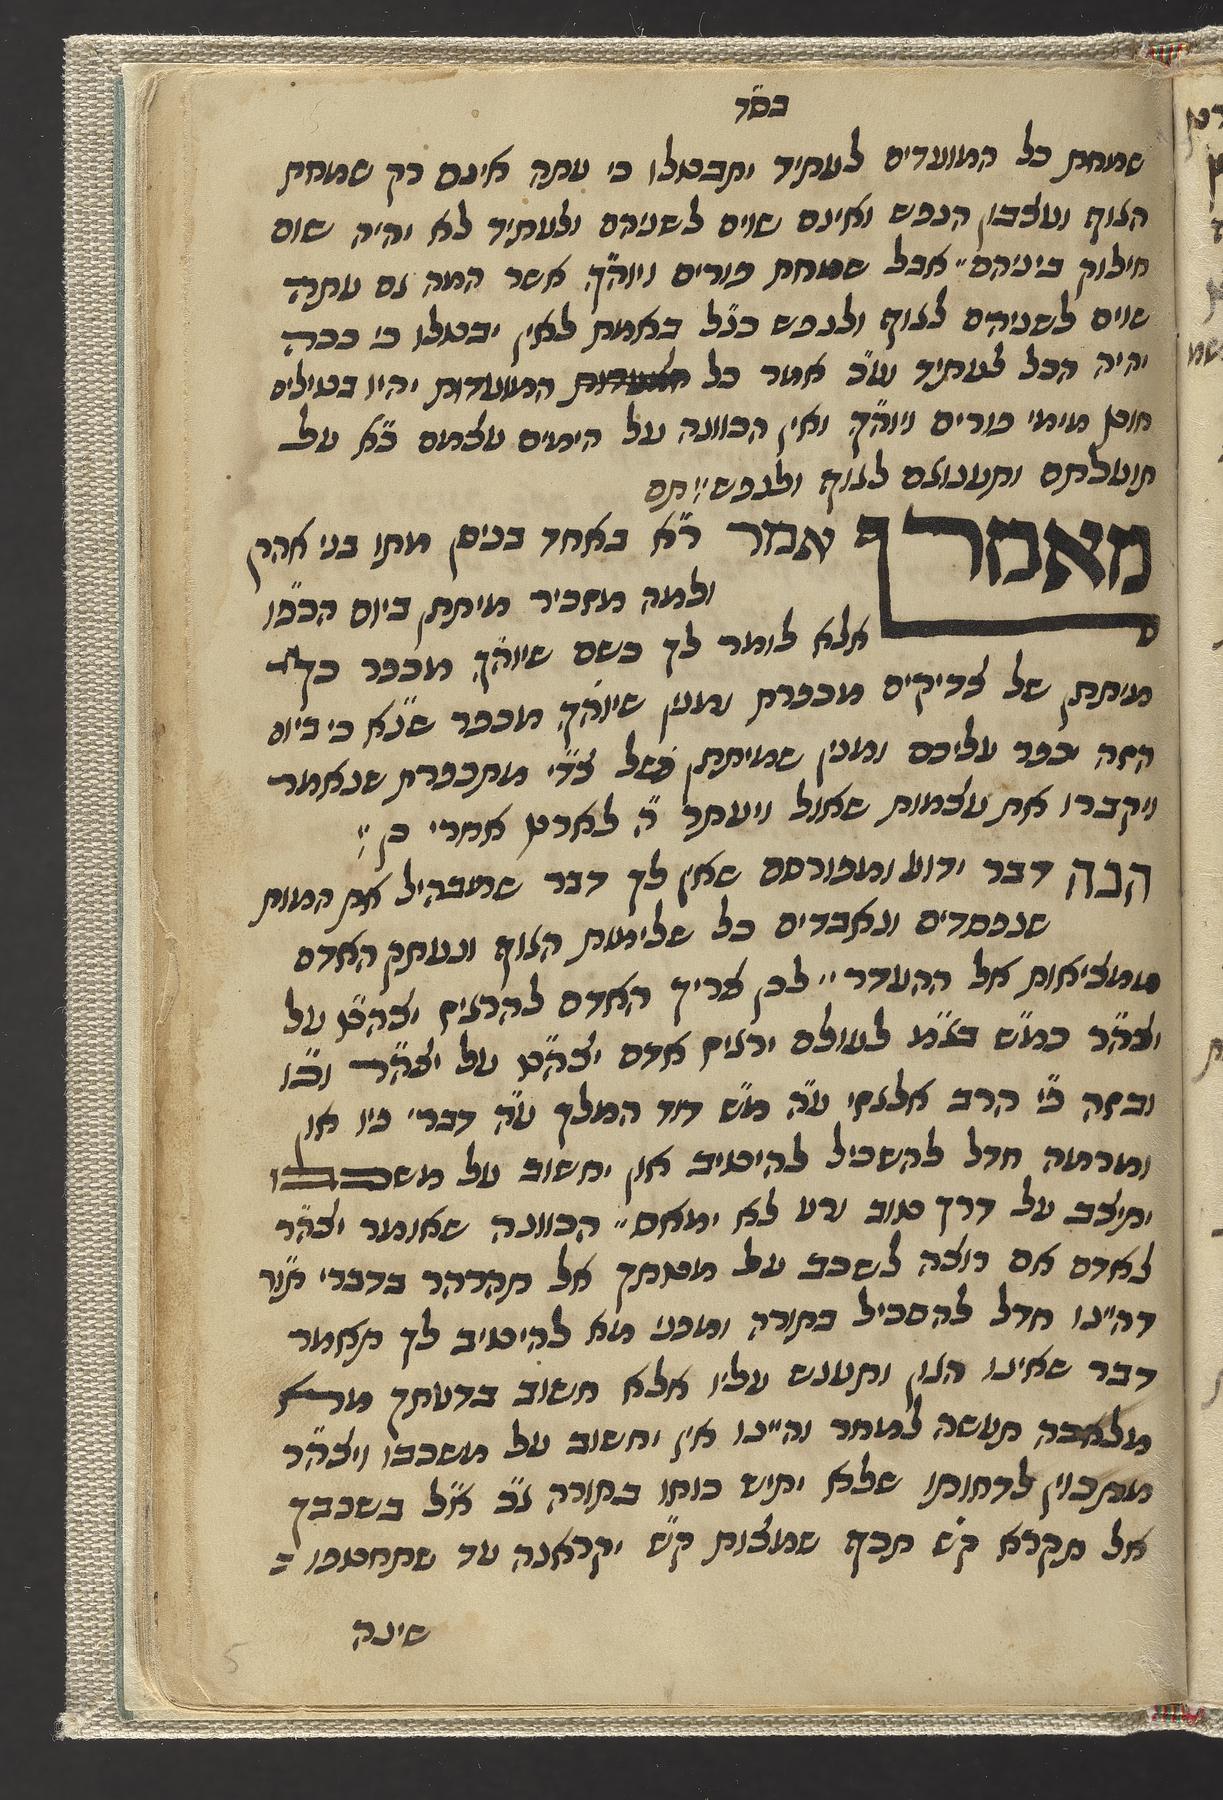 בס״ד
שמחת כל המועדים לעתיד יתבטלו כי עתה אינם רק שמחת
הגוף ועצבון הנפש ואינם שוים לשניהם ולעתיד לא יהיה שום
חילוק ביניהם״ אבל שמחת פורים ויוה״כ אשר המה גם עתה
שוים לשניהם לגוף ולנפש כנ״ל באמת לאין יבטלו כי ככה
יהיה הכל לעתיד ע״כ אמר כל המועדות יהיו בטילים
חוץ מימי פורים ויוה״כ ואין הכוונה על הימים עצמם כ״א על
תועלתם ותענוגם לגוף ולנפש״ תם
מאמר ף אמר ר״א באחד בניסן מתו בני אהרן
ולמה מזכיר מיתתן ביום הכפו
אלא לומר לך כשם שיוה״כ מכפר כך
מיתתן של צדיקים מכפרת ומנין שיוה״כ מכפר שנ״א כי ביום
הזה יכפר עליכם ומנין שמיתתן של צדי׳ מתכפרת שנאמר
ויקברו את עצמות שאול ויעתר ה׳ לארץ אחרי כן״
הנה דבר ידוע ומפורסם שאין לך דבר שמבהיל את המות
שנפסדים ונאבדים כל שלימות הגוף ונעתק האדם
ממציאות אל ההעדר״ לכן צריך האדם להרגיז יצה״ט על
יצה״ר כמ״ש בג״מ לעולם ירגיז אדם יצה״ט על יצה״ר וכ״ו
ובזה פי׳ הרב אלגזי ע״ה מ״ש דוד המלך ע״ה דברי פיו און
ומרמה חדל להשכיל להיטיב און יחשוב על משכבו
יתיצב על דרך טוב ורע לא ימאס״ הכוונה שאומר יצה״ר
לאדם אם רוצה לשכב על מטתך אל תהרהר בדברי תור׳
דהיינו חדל להשכיל בתורה ומפני מא להיטיב לך תאמר
דבר שאינו הגון ותענש עליו אלא חשוב בדעתך
מלאכה תעשה למחר והיינו אין יחשוב על משכבו ויצה״ר
מתכוין לדחותו שלא יתיש כוחו בתורה ג״כ א״ל בשכבך
אל תקרא ק״ש תכף שמצות ק״ש יקראנה עד שתחטפו
שינה
5